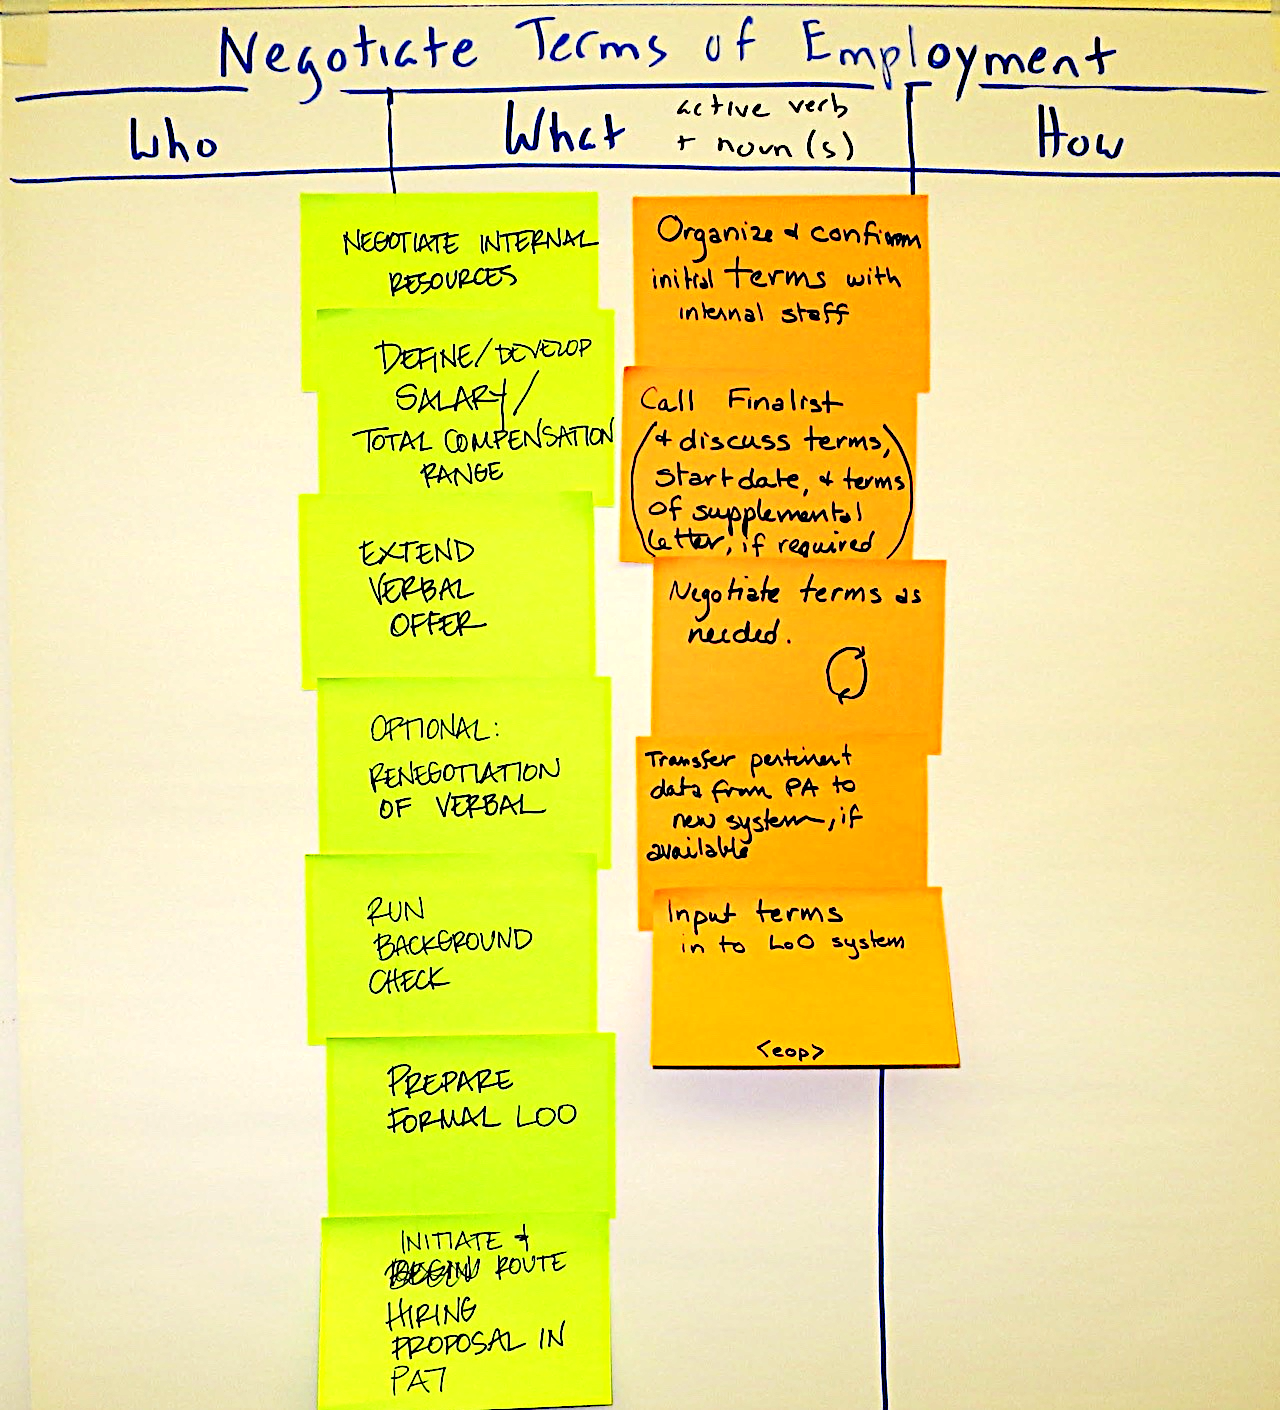 Negotiate Terms of Employment
Who
What
active verb
+ noun(s)
How
NEGOTIATE INTERNAL
RESOURCES
DEFINE/DEVELOP
SALARY/
TOTAL COMPENSATION
RANGE
EXTEND
VERBAL
OFFER
OPTIONAL:
RENEGOTIATION
OF VERBAL
RUN
BACKGROUND
CHECK
PREPARE
FORMAL LOO
INITIATE &
ROUTE
HIRING
PROPOSAL IN
PA7
Organize & confirm
initial terms with
internal staff
Call Finalist
(& discuss terms,
start date, & terms
of supplemental
letter, if required)
Negotiate terms as
needed.
Transfer pertinent
data from PA to
new system, if
available
Input terms
in to LoO system
<eop>